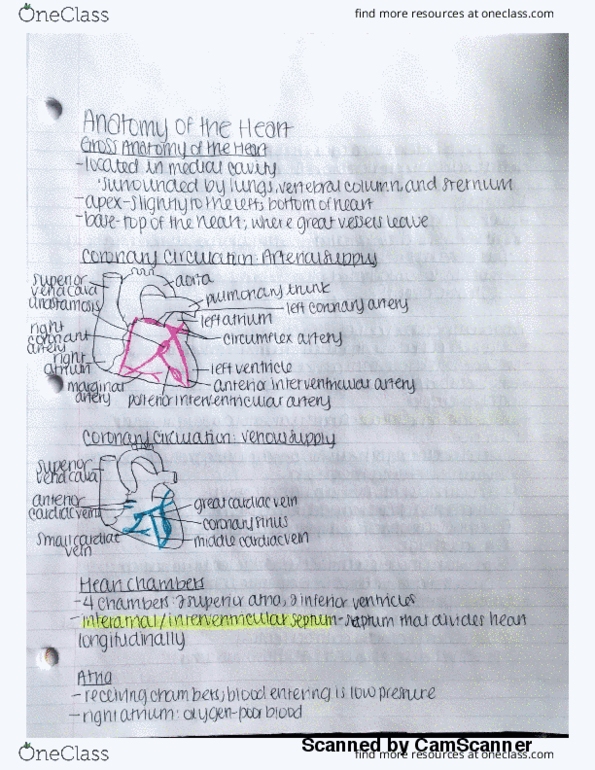 OneClass
find more resources at oneclass.com
Anatomy of the Heart
Gross Anatomy of the Heart
-located in medial cavity
'surrounded by lungs, vertebral column, and sternum
-apex-slightly to the left; bottom of heart
-base-top of the heart; where great vessels leave
Coronary Circulation: Arterial supply
superior vena cava
aorta
anastamosis
pulmonary trunk
left coronary artery
left atrium
right coronary artery
circumflex artery
right atrium
left ventricle
marginal artery
anterior interventricular artery
posterior interventricular artery
Coronary Circulation: venous supply
superior vena cava
anterior cardiac vein
great cardiac vein
coronary sinus
small cardiac vein
middle cardiac vein
Heart chambers
-4 chambers: 2 superior atria, 2 inferior ventricles
-interatrial/interventricular septum-septum that divides heart
longitudinally
Atria
-receiving chambers; blood entering is low pressure
-right atrium: oxygen-poor blood
Scanned by CamScanner
OneClass
find more resources at oneclass.com